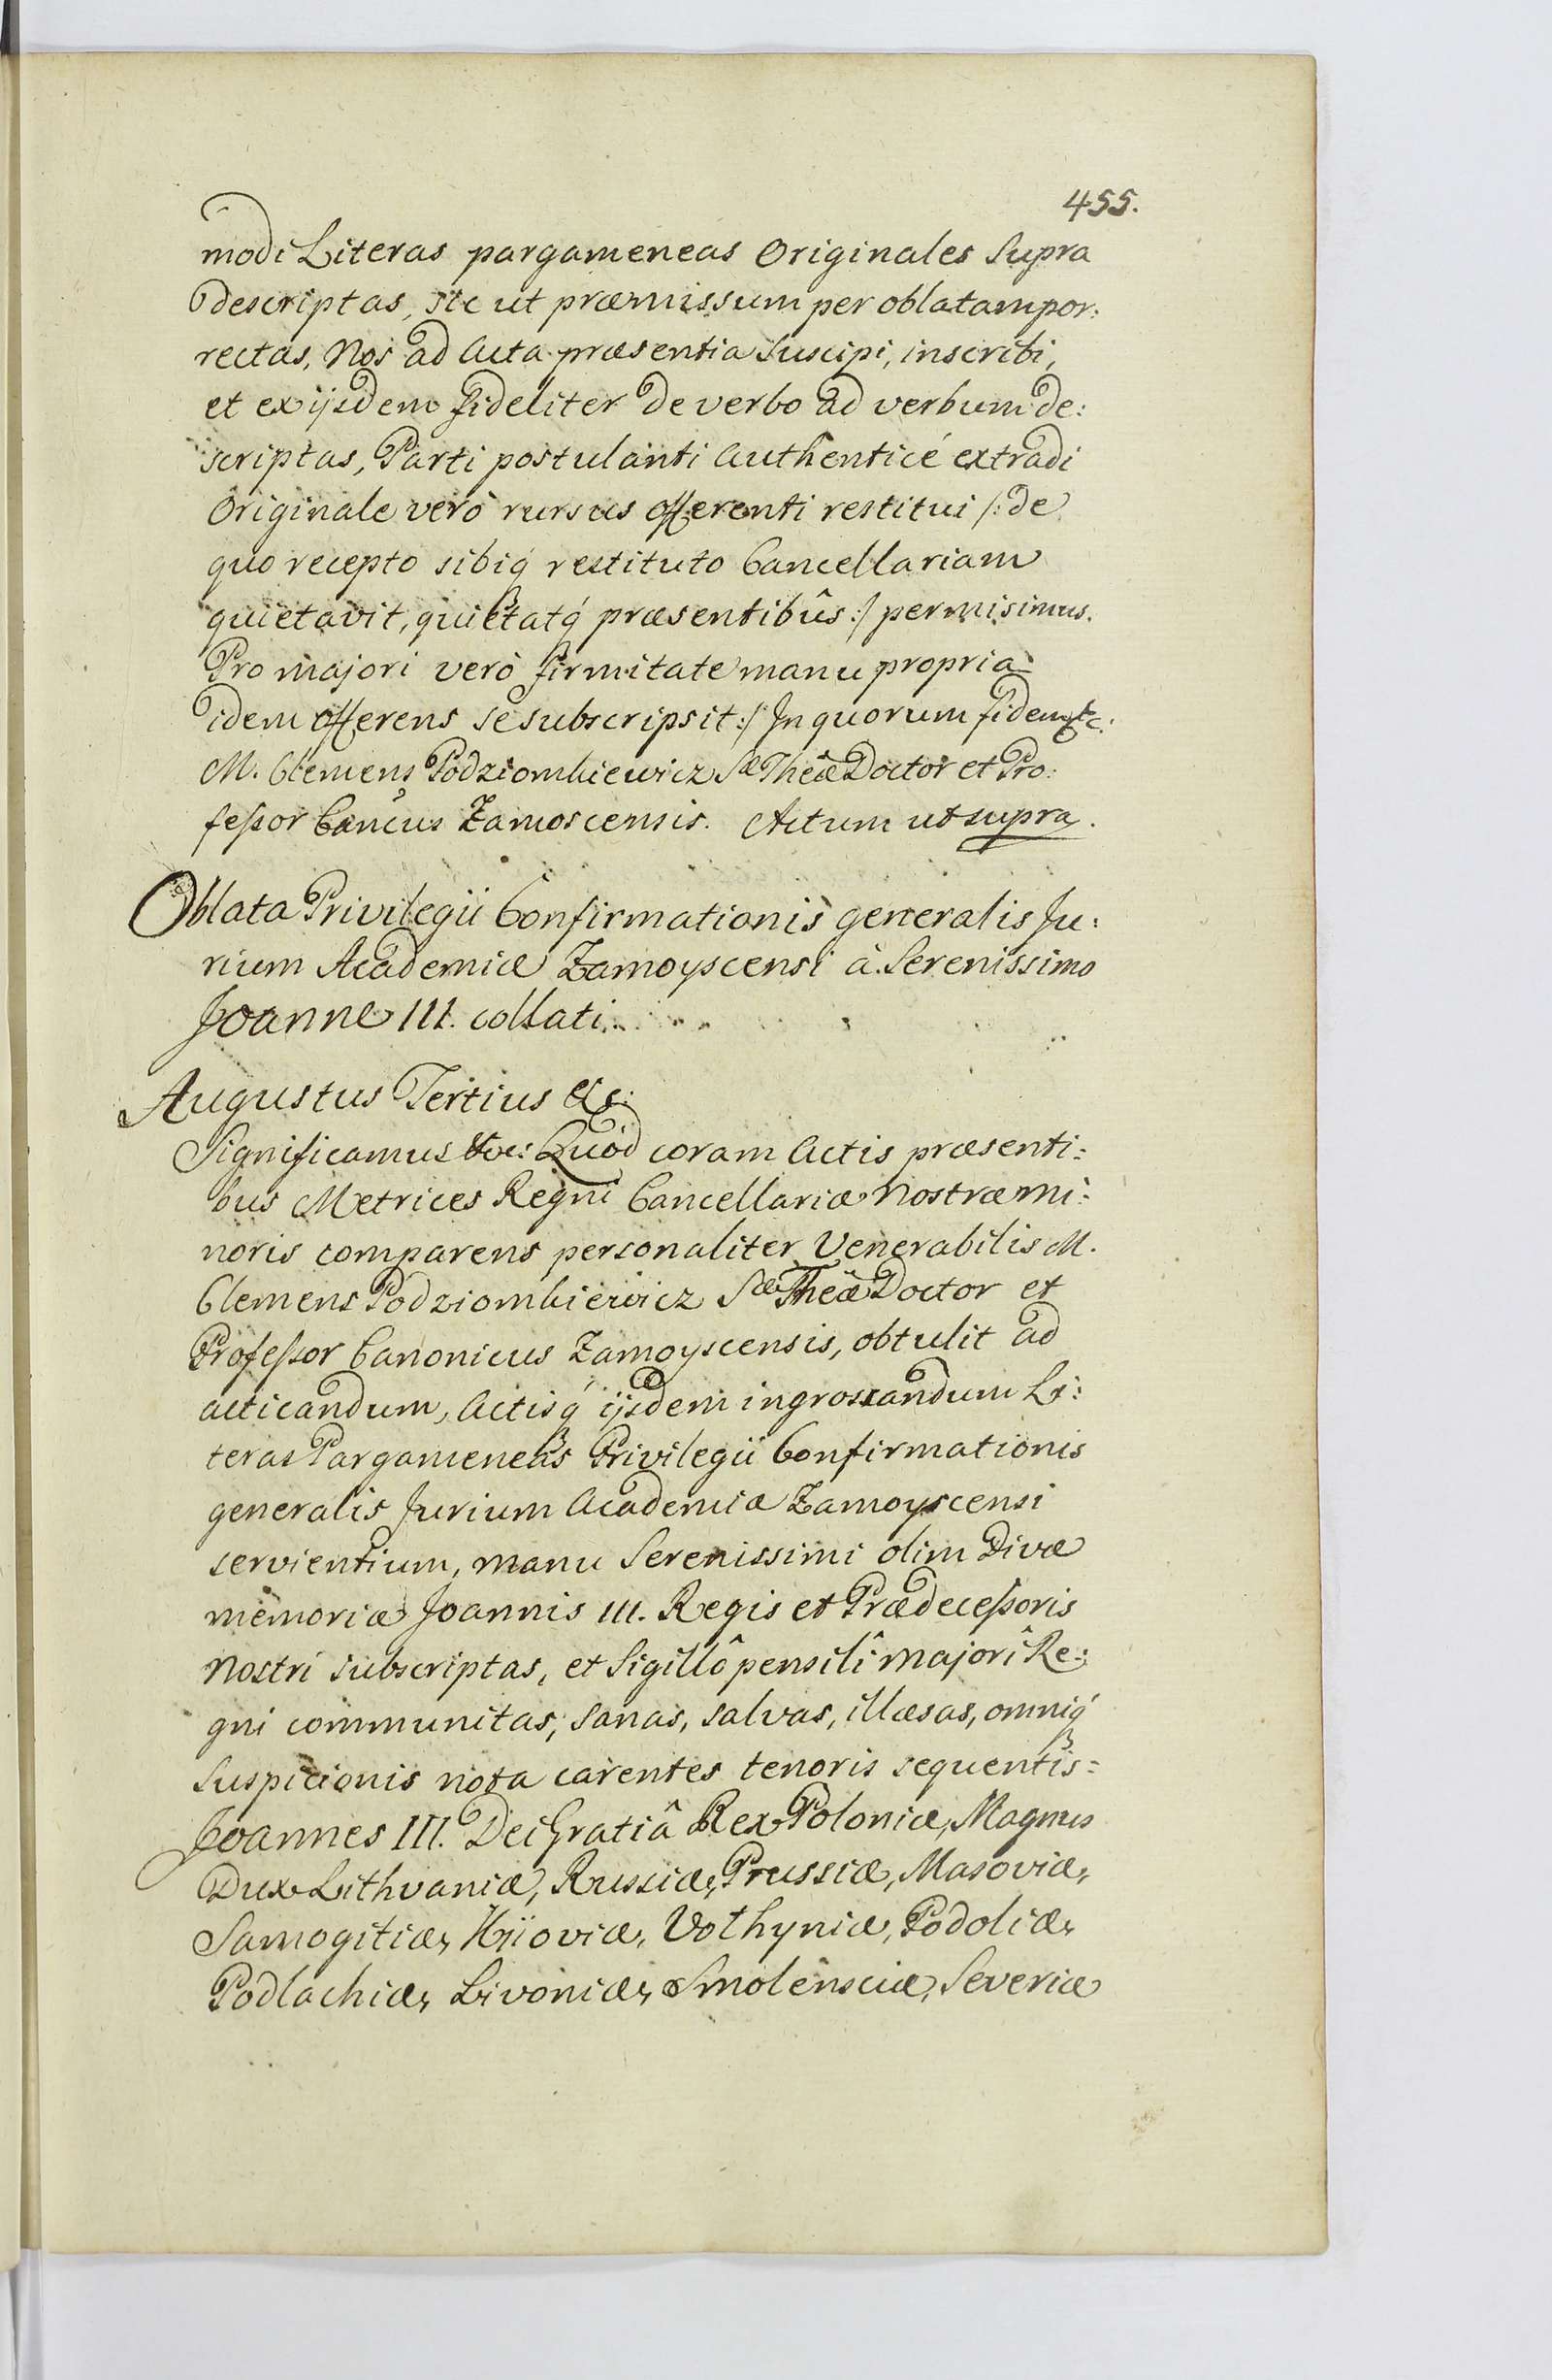 455.
modi Literas pargameneas Originales Supra
descriptas, sic ut præmissum per oblatam por:
rectas, Nos ad Acta præsentia Suscipi, inscribi,
et ex ijsdem fideliter de verbo ad verbum de:
scriptas, Parti postulanti Authenticé extradi
Originale verò rursus offerenti restitui /: de
quo recepto sibiq́ restituto Cancellariam
quietavit, quietatq́ præsentibûs :/ permisimus.
Pro majori verò firmitate manu propria
idem offerens se subscripsit :/ In quorum fidem &c:
M. Clemens Podziomkiewicz Sæ Theæ Doctor et Pro:
feſsor Cancus Zamoscensis. Actum ut supra.
Oblata Privilegii Confirmationis generalis Ju:
rium Academiæ Zamoyscensi à Serenissimo
Joanne III. collati.
Augustus Tertius &c:
Significamus &c: Quòd coram Actis præsenti:
bus Metrices Regni Cancellariæ Nostræ Mi:
noris comparens personaliter Venerabilis M.
Clemens Podziomkiewicz Sæ Theæ Doctor et
Profeſsor Canonicus Zamoyscensis, obtulit ad
acticandum, Actisq́ ijsdem ingrossandum Li:
teras Pargameneas Privilegii Confirmationis
generalis Jurium Academiæ Zamoyscensi
servientium, manu Serenissimi olim Divæ
memoriæ Joannis III. Regis et Prædeceſsoris
Nostri subscriptas, et Sigillô pensilî majorî Re:
gni communitas, sanas, salvas, illæsas, omniq́
Suspicionis nota carentes tenoris sequentis:
Joannes III. Dei Gratiâ Rex Poloniæ, Magnus
Dux Lithvaniæ, Russiæ, Prussiæ, Masoviæ,
Samogitiæ, Kijoviæ, Volhyniæ, Podoliæ,
Podlachiæ, Livoniæ, Smolensciæ, Severiæ